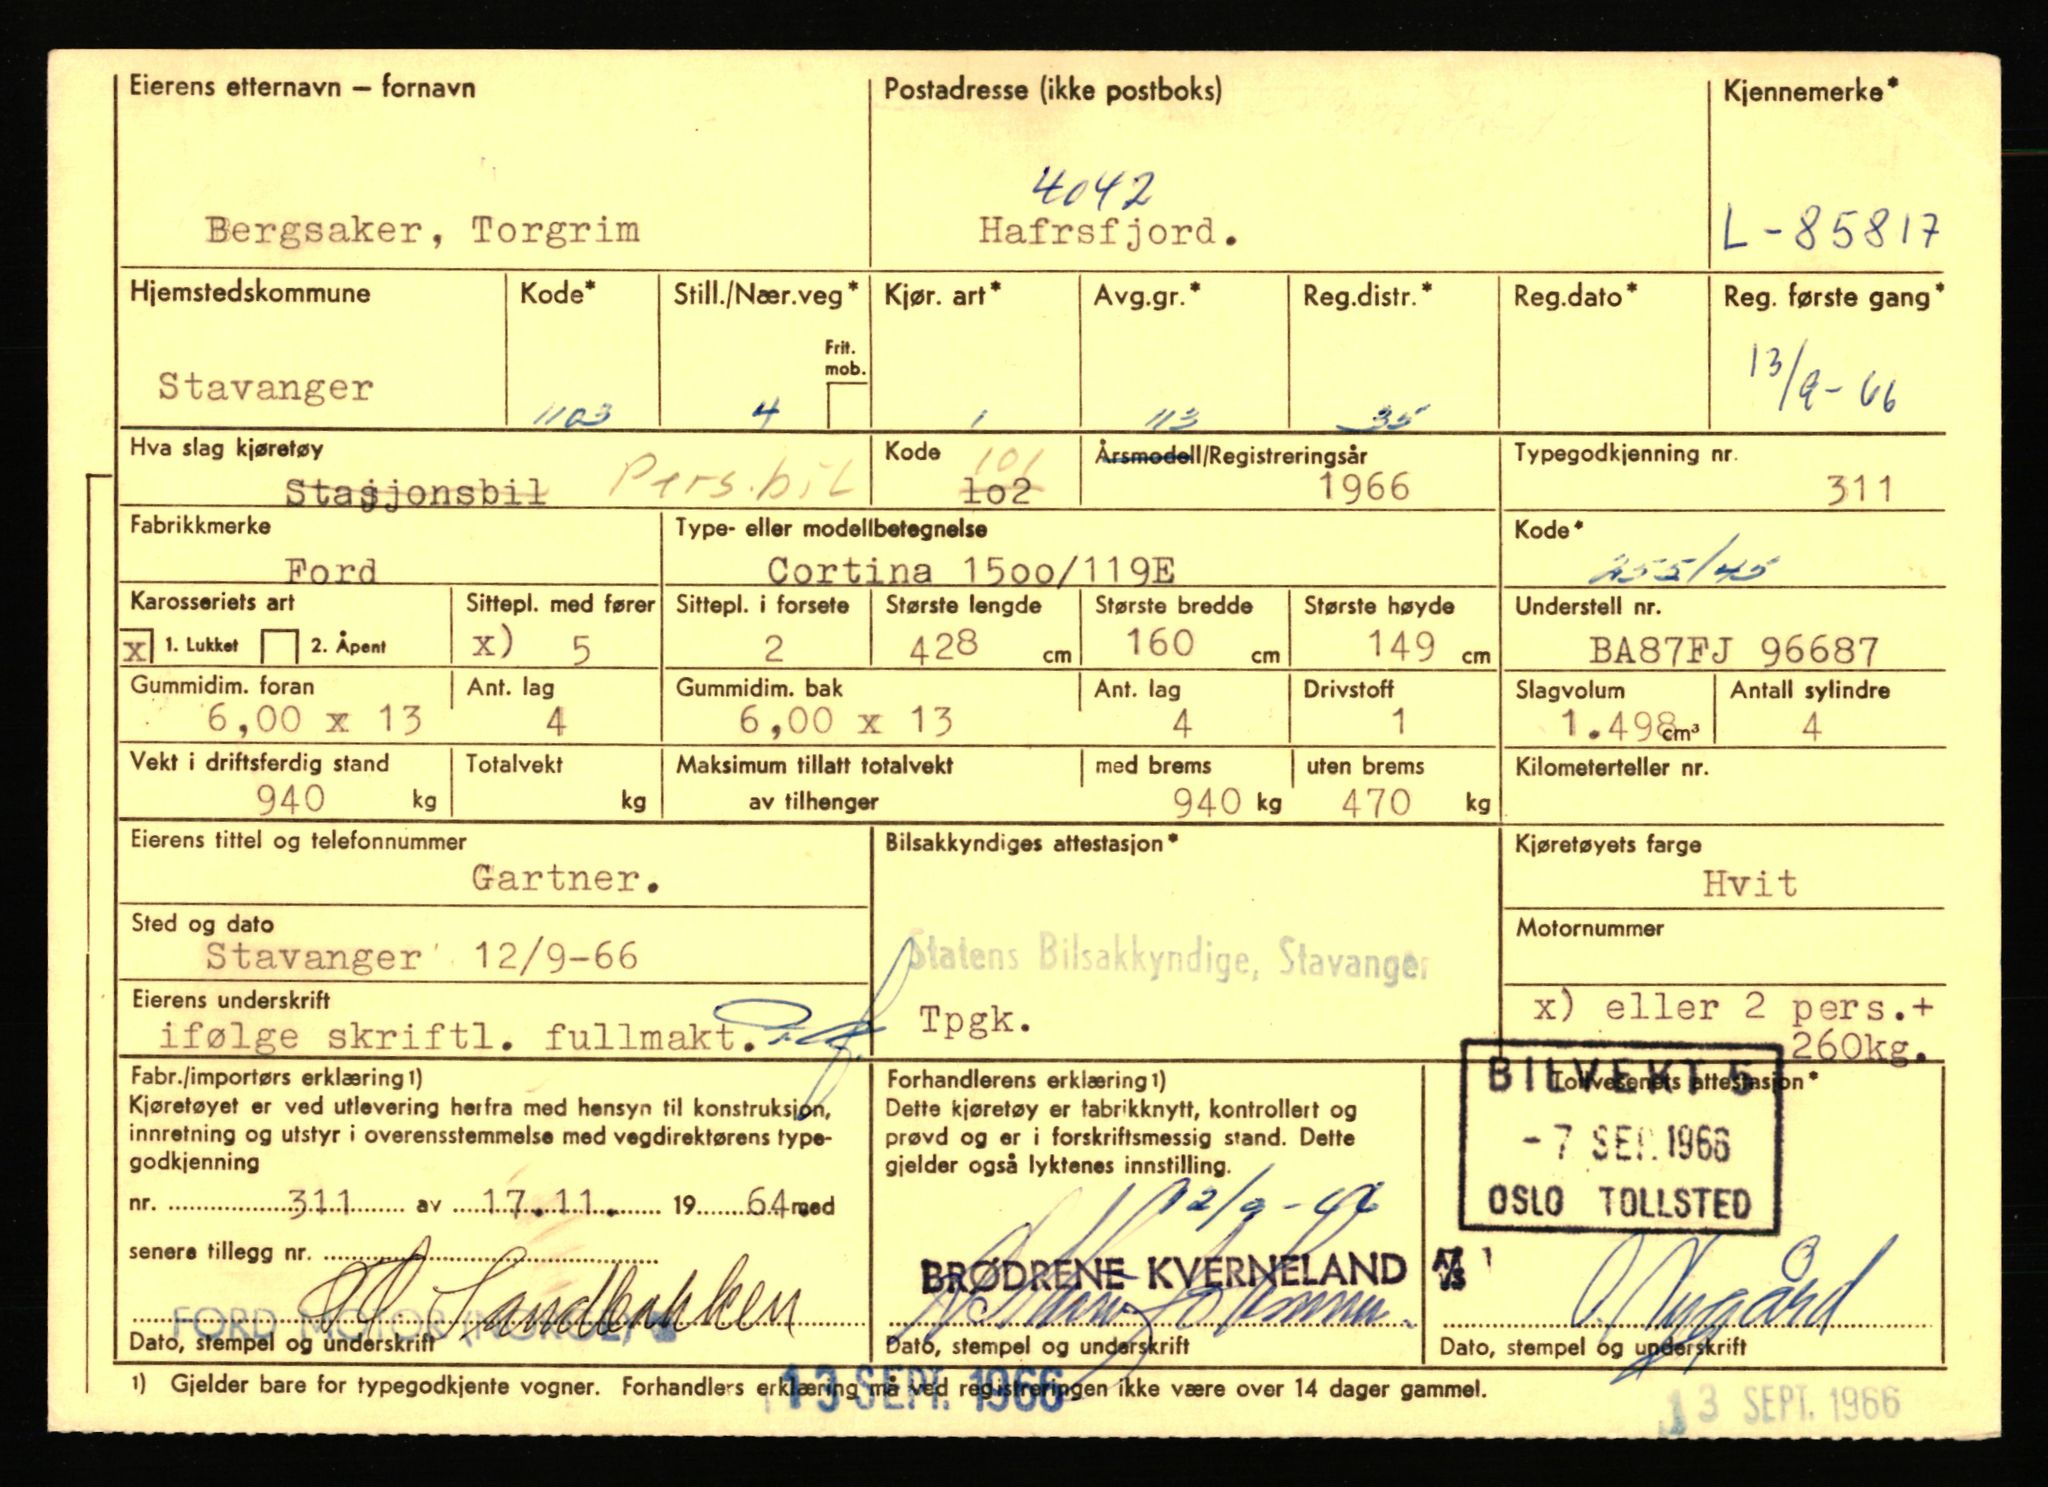 Eierens etternavn – fornavn Postadresse (ikke postboks) Kjennemerke*
4042
Bergsaker, Torgrim Hafrsfjord. L-85817
Hjemstedskommune Kode* Still./Nær.veg* Kjør. art* Avg.gr.* Reg.distr.* Reg.dato* Reg. første gang*
Frit. mob.
Stavanger 1103 4 1 113 35 13/9-66
Hva slag kjøretøy Kode Årsmodell/Registreringsår Typegodkjenning nr.
Stasjonsbil Pers.bil 101 1o2 1966 311
Fabrikkmerke Type- eller modellbetegnelse Kode*
Ford Cortina 15oo/119E 255/45
Karosseriets art Sittepl. med fører Sittepl. i forsete Største lengde Største bredde Største høyde Understell nr.
x 1. Lukket 2. Åpent x) 5 2 428 cm 160 cm 149 cm BA87FJ 96687
Gummidim. foran Ant. lag Gummidim. bak Ant. lag Drivstoff Slagvolum Antall sylindre
6,00 x 13 4 6,00 x 13 4 1 1.498 cm³ 4
Vekt i driftsferdig stand Totalvekt Maksimum tillatt totalvekt med brems uten brems Kilometerteller nr.
940 kg kg av tilhenger 940 kg 470 kg
Eierens tittel og telefonnummer Bilsakkyndiges attestasjon* Kjøretøyets farge
Gartner. Hvit
Sted og dato Motornummer
Stavanger 12/9-66 Statens Bilsakkyndige, Stavanger
Eierens underskrift x) eller 2 pers.+
ifølge skriftl. fullmakt. Tpgk. 260kg.
Fabr./importørs erklæring 1) Forhandlerens erklæring 1) Tollvesenets attestasjon*
BILVEKT 5
Kjøretøyet er ved utlevering herfra med hensyn til konstruksjon, Dette kjøretøy er fabrikknytt, kontrollert og
innretning og utstyr i overensstemmelse med vegdirektørens type- prøvd og er i forskriftsmessig stand. Dette
- 7 SEP. 1966
godkjenning gjelder også lyktenes innstilling.
nr. 311 av 17.11. 19 64 med 12/9-66 OSLO TOLLSTED
senere tillegg nr. BRØDRENE KVERNELAND A/S
FORD MOTOR (NORGE) A/S Sandbakken Nygård
Dato, stempel og underskrift Dato, stempel og underskrift Dato, stempel og underskrift
1) Gjelder bare for typegodkjente vogner. Forhandlers erklæring må ved registreringen ikke være over 14 dager gammel.
13 SEPT. 1966 13 SEPT. 1966